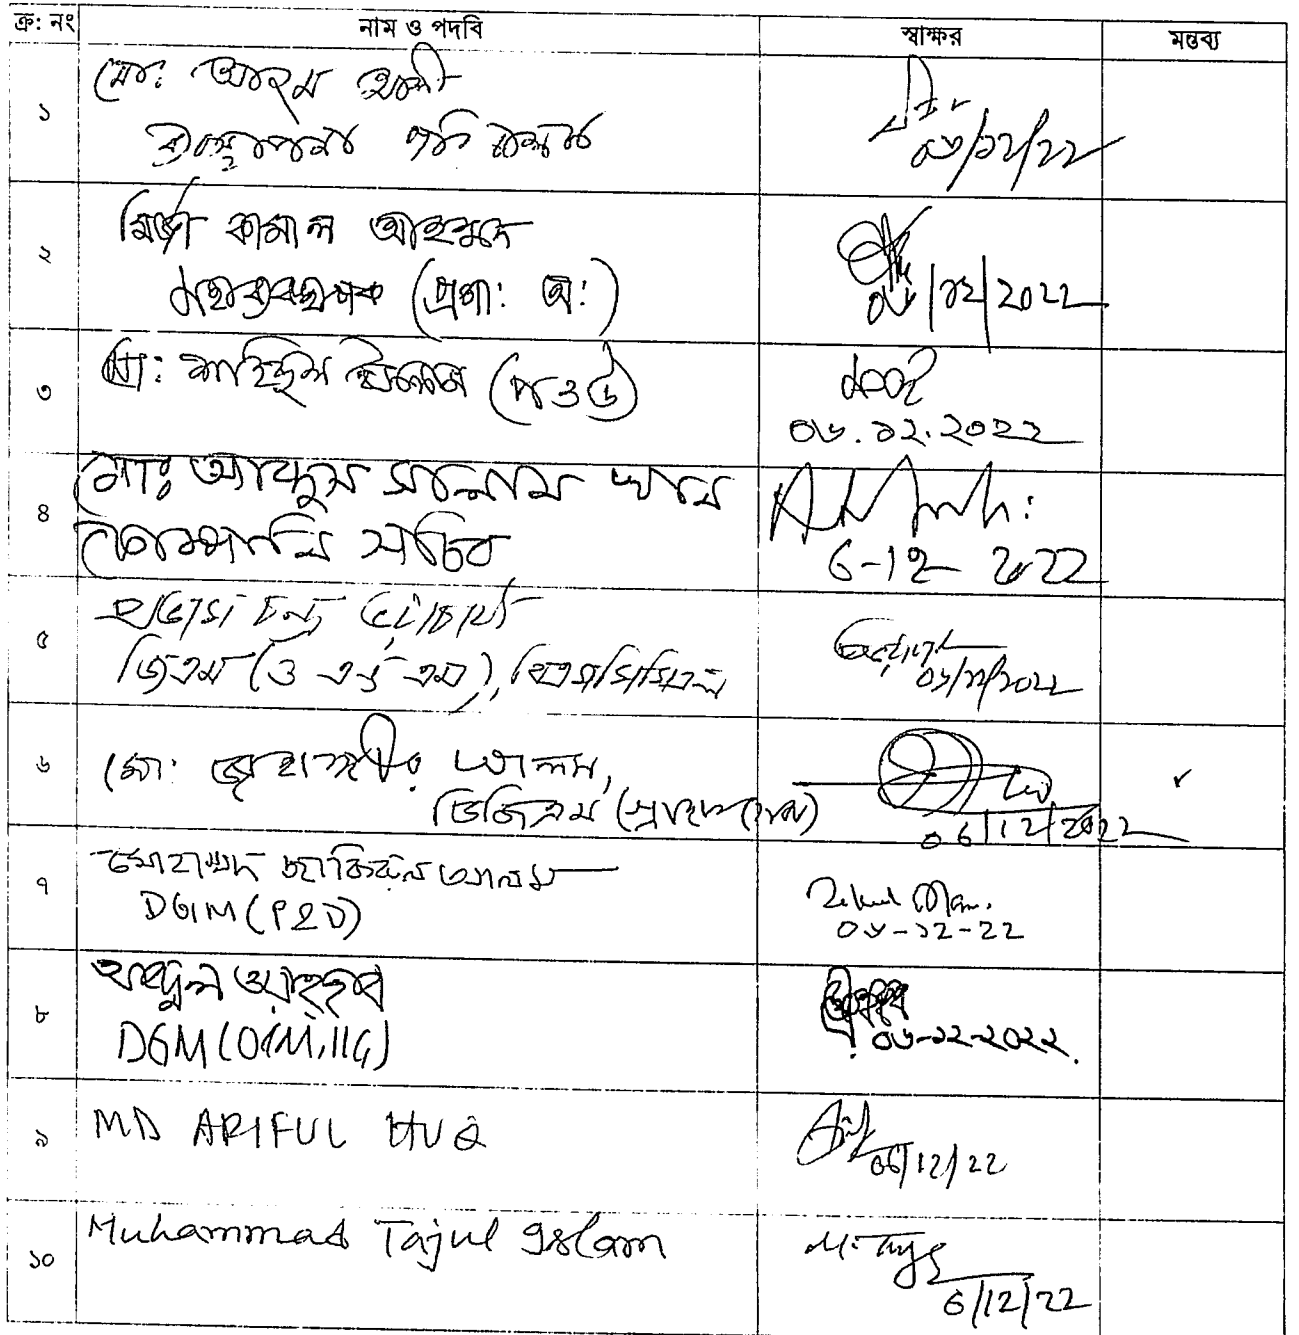 ক্র: নং নাম ও পদবি স্বাক্ষর মন্তব্য
১ মো: আজম আলী
ব্যবস্থাপনা পরিচালক
০৬/১২/২২
২ মির্জা কামাল আহম্মদ
মহাব্যবস্থাপক (প্রশা: অ:)
০৬/১২/2022
৩ মো: সাইদুল (প ও উ)
০৬.১২.২০২২
৪ মোঃ আব্দুস সালাম খান
কোম্পানি সচিব
6-12-2022
৫
জিএম (ও এন্ড এম), বিএসসিসিএল
০৬/১২/২০২২
৬ মো: জাহাঙ্গীর আলম,
ডিজিএম
06/12/2022
৭ মোহাম্মদ জাকিরুল আলম
DGM (P&D)
০৬-১২-২২
৮ আব্দুল ওয়াহ্হাব
DGM (O&M, IIG)
০৬-১২-২০২২
৯ MD ARIFUL HUQ
06/12/22
১০ Muhammad Tajul Islam
6/12/22